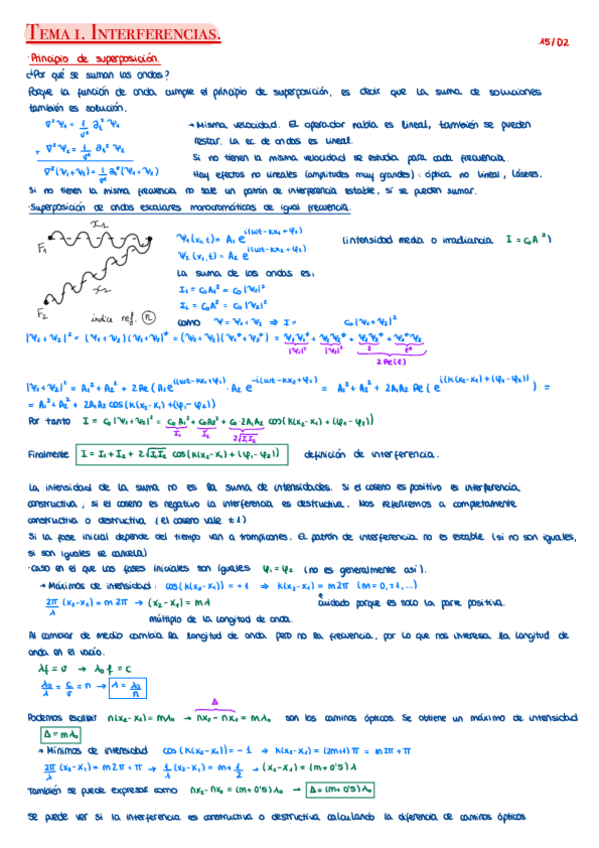 TEMA 1. INTERFERENCIAS.
15/02
· Principio de superposición.
¿Por qué se suman las ondas?
Porque la función de onda cumple el principio de superposición, es decir que la suma de soluciones
también es solución.
∇²Ψ₁ = 1/v² ∂t²Ψ₁
+ ∇²Ψ₂ = 1/v² ∂t²Ψ₂
∇²(Ψ₁+Ψ₂) = 1/v² ∂t²(Ψ₁+Ψ₂)
→ Misma velocidad. El operador nabla es lineal, también se pueden
restar. La ec de ondas es lineal.
Si no tienen la misma velocidad se estudia para cada frecuencia.
Hay efectos no lineales (amplitudes muy grandes): óptica no lineal, láseres.
Si no tienen la misma frecuencia no sale un patrón de interferencia estable, sí se pueden sumar.
· Superposición de ondas escalares monocromáticas de igual frecuencia.
F₁ x₁
F₂ x₂
índice ref. n
Ψ₁(x₁,t) = A₁ e^i(ωt-kx₁+φ₁)
Ψ₂(x₂,t) = A₂ e^i(ωt-kx₂+φ₂)
(intensidad media o irradiancia I = c₀A²)
La suma de las ondas es:
I₁ = c₀A₁² = c₀|Ψ₁|²
I₂ = c₀A₂² = c₀|Ψ₂|²
como Ψ = Ψ₁+Ψ₂ ⇒ I = c₀|Ψ₁+Ψ₂|²
|Ψ₁+Ψ₂|² = (Ψ₁+Ψ₂)(Ψ₁+Ψ₂)* = (Ψ₁+Ψ₂)(Ψ₁*+Ψ₂*) = Ψ₁Ψ₁* + Ψ₂Ψ₂* + Ψ₁Ψ₂* + Ψ₁*Ψ₂
|Ψ₁|² |Ψ₂|² z z*
2Re(z)
|Ψ₁+Ψ₂|² = A₁²+A₂² + 2Re(A₁e^i(ωt-kx₁+φ₁) · A₂ e^-i(ωt-kx₂+φ₂)) = A₁²+A₂² + 2A₁A₂ Re(e^i(k(x₂-x₁)+(φ₁-φ₂))) =
= A₁²+A₂² + 2A₁A₂ cos(k(x₂-x₁)+(φ₁-φ₂))
Por tanto I = c₀|Ψ₁+Ψ₂|² = c₀A₁² + c₀A₂² + c₀·2A₁A₂ cos(k(x₂-x₁)+(φ₁-φ₂))
I₁ I₂ 2√I₁I₂
Finalmente I = I₁+I₂ + 2√I₁I₂ cos(k(x₂-x₁)+(φ₁-φ₂)) definición de interferencia.
La intensidad de la suma no es la suma de intensidades. Si el coseno es positivo es interferencia
constructiva, si el coseno es negativo la interferencia es destructiva. Nos referiremos a completamente
constructiva o destructiva (el coseno vale ±1)
Si la fase inicial depende del tiempo van a trompicones. El patrón de interferencia no es estable (si no son iguales,
si son iguales se cancela)
· Caso en el que las fases iniciales son iguales φ₁=φ₂ (no es generalmente así).
→ Máximos de intensidad: cos(k(x₂-x₁)) = +1 ⇒ k(x₂-x₁) = m2π (m=0,±1,...)
2π/λ (x₂-x₁) = m2π → (x₂-x₁) = mλ
cuidado porque es solo la parte positiva.
múltiplo de la longitud de onda.
Al cambiar de medio cambia la longitud de onda pero no la frecuencia, por lo que nos interesa la longitud de
onda en el vacío.
λf = v → λ₀f = c
λ₀/λ = c/v = n → λ = λ₀/n
Δ
Podemos escribir n(x₂-x₁) = mλ₀ → nx₂ - nx₁ = mλ₀ son los caminos ópticos. Se obtiene un máximo de intensidad
Δ = mλ₀
→ Mínimos de intensidad cos(k(x₂-x₁)) = -1 ⇒ k(x₂-x₁) = (2m+1)π = m2π+π
2π/λ (x₂-x₁) = m2π+π → 1/λ (x₂-x₁) = m + 1/2 → (x₂-x₁) = (m+0'5)λ
También se puede expresar como nx₂-nx₁ = (m+0'5)λ₀ → Δ = (m+0'5)λ₀
Se puede ver si la interferencia es constructiva o destructiva calculando la diferencia de caminos ópticos